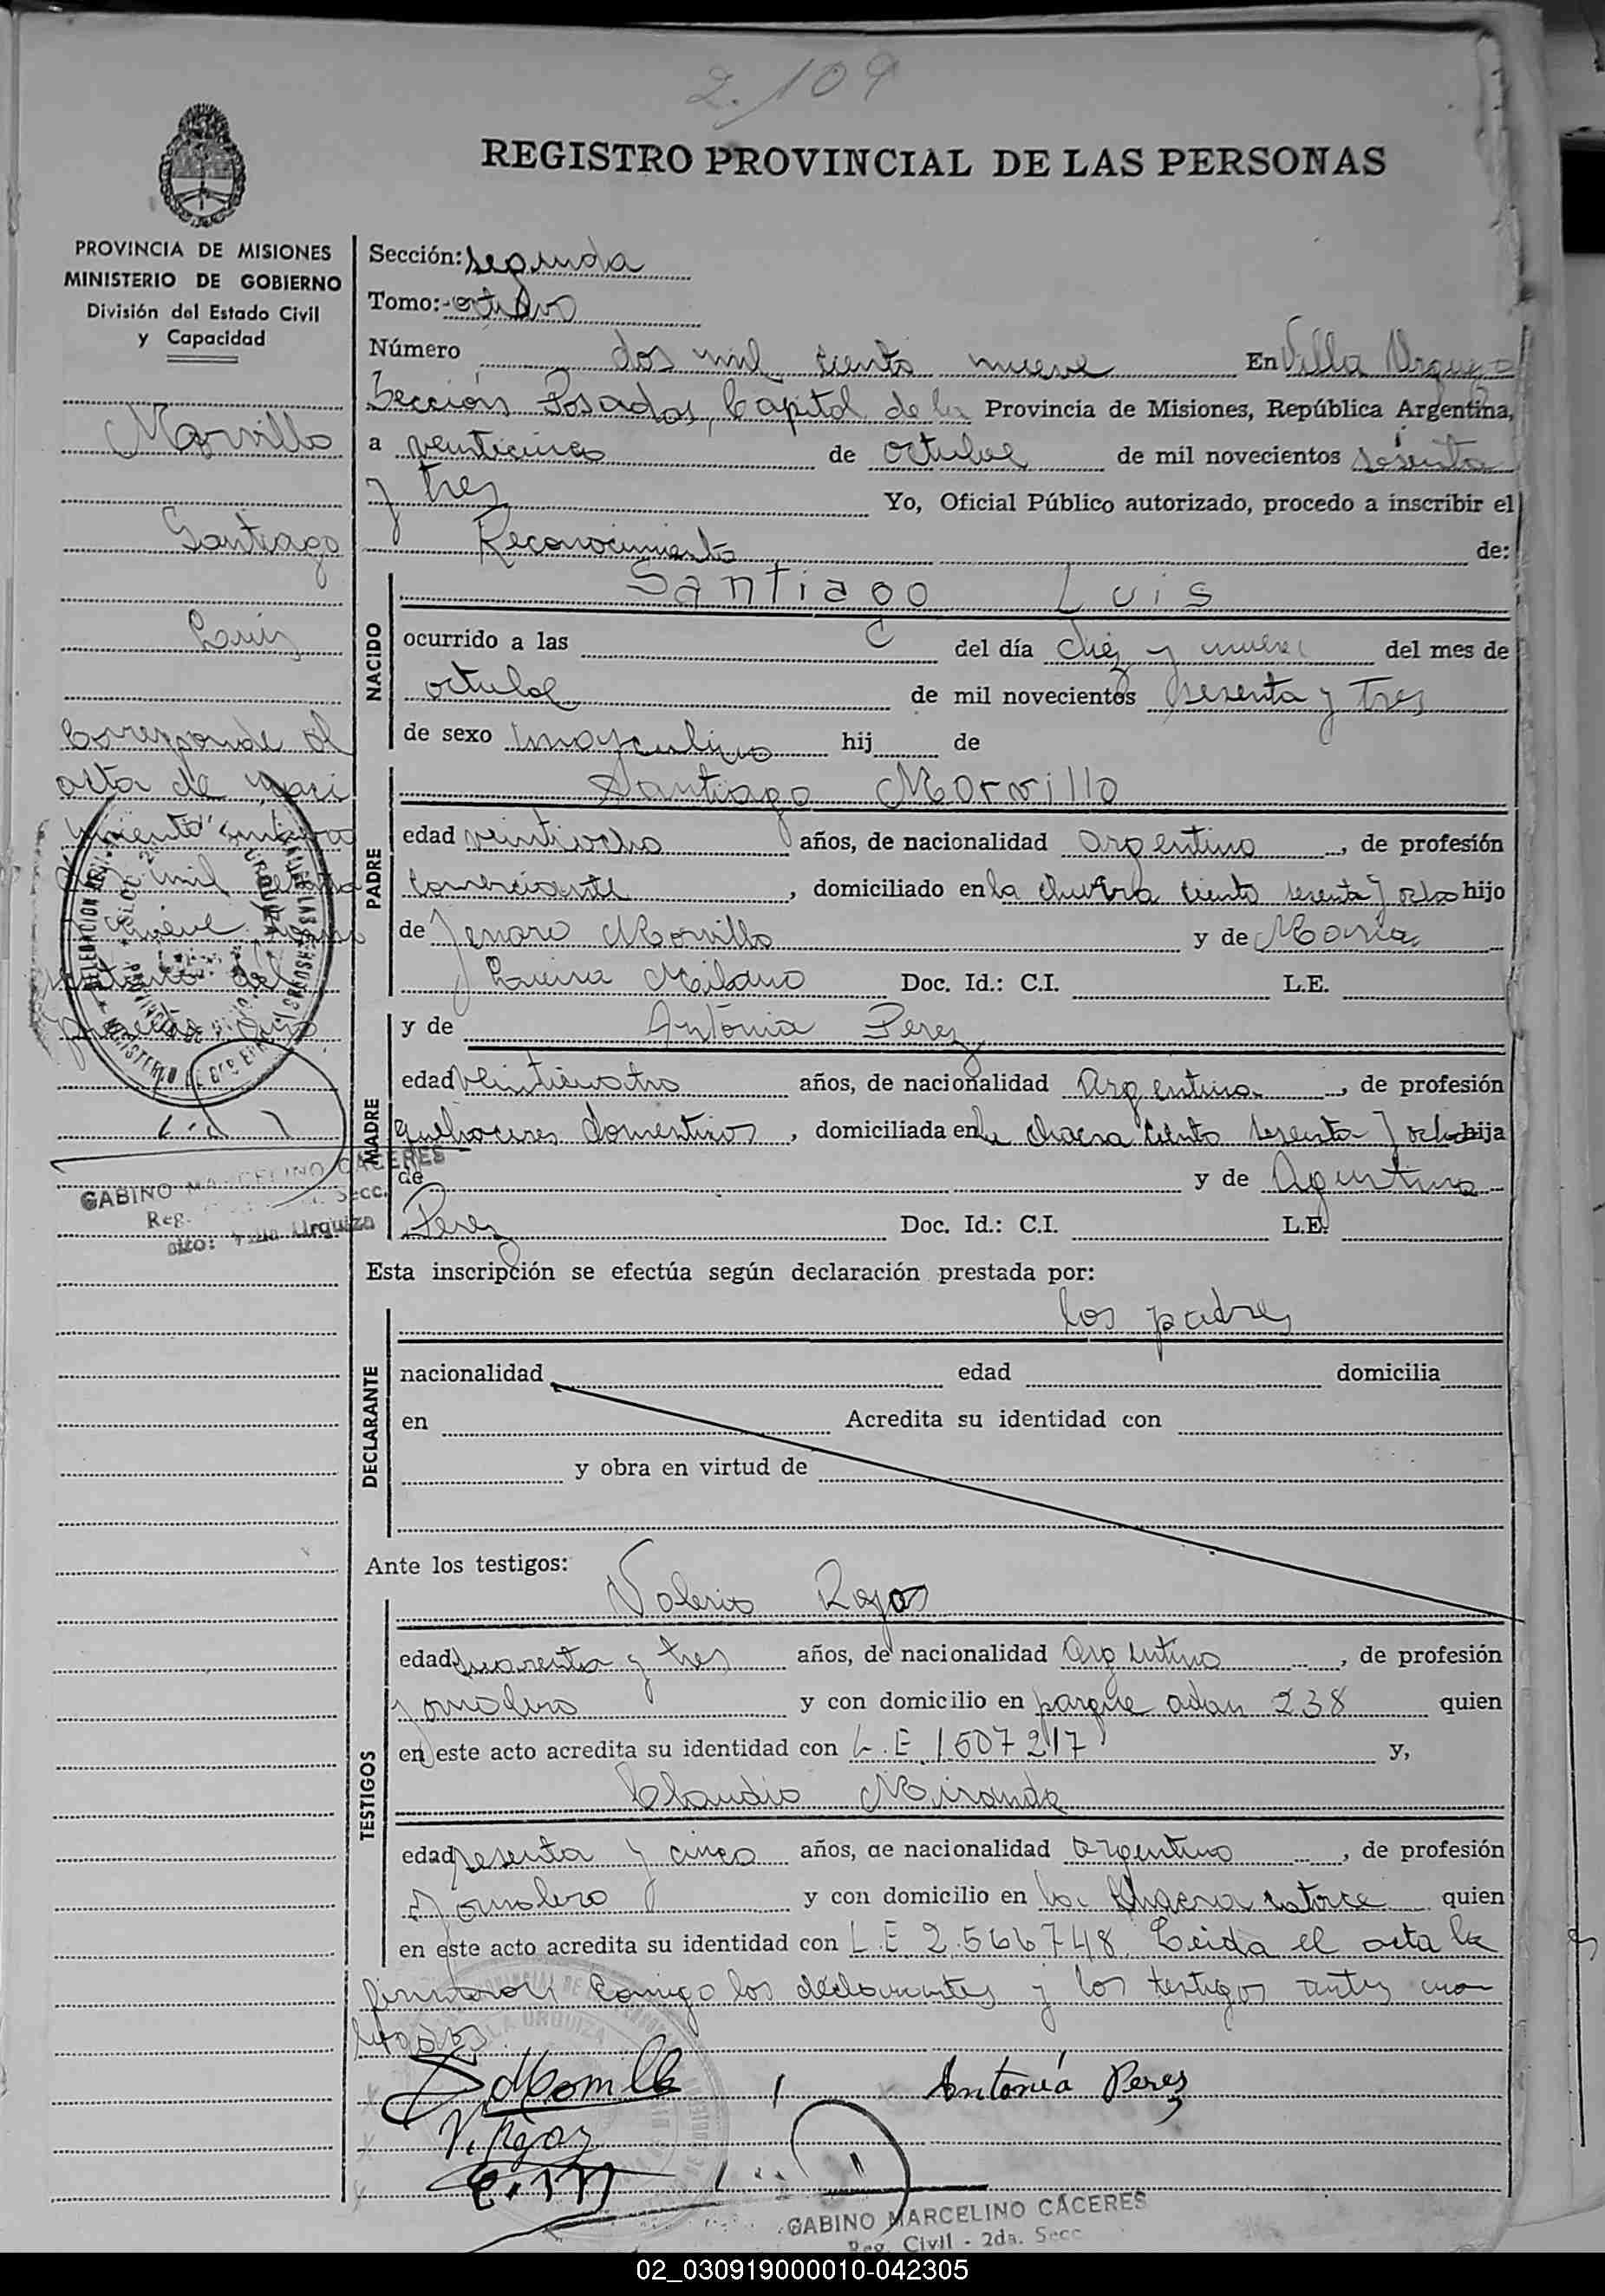 2.109
REGISTRO PROVINCIAL DE LAS PERSONAS
PROVINCIA DE MISIONES
MINISTERIO DE GOBIERNO
División del Estado Civil
y Capacidad
Morvillo
Santiago
Luis
Corresponde al
acta de naci
miento número
mil
nueve
GABINO MARCELINO CACERES
Reg. Secc.
Villa Urquiza
Sección: segunda
Tomo: octavo
Número dos mil ciento nueve En Villa Urquiza
Sección Posadas, Capital de la Provincia de Misiones, República Argentina,
a veinticinco de octubre de mil novecientos sesenta
y tres Yo, Oficial Público autorizado, procedo a inscribir el
Reconocimiento de:
NACIDO
Santiago Luis
ocurrido a las del día diez y nueve del mes de
octubre de mil novecientos sesenta y tres
de sexo masculino hij de
PADRE
Santiago Morvillo
edad veintiocho años, de nacionalidad Argentino, de profesión
comerciante, domiciliado en la chacra ciento sesenta y ocho hijo
de Jenaro Morvillo y de María
Luisa Milano Doc. Id.: C.I. L.E.
MADRE
y de Antonia Perez
edad veinticuatro años, de nacionalidad Argentina, de profesión
quehaceres domesticos, domiciliada en la chacra ciento sesenta y ocho hija
de y de Agustina
Perez Doc. Id.: C.I. L.E.
Esta inscripción se efectúa según declaración prestada por:
DECLARANTE
los padres
nacionalidad edad domicilia
en Acredita su identidad con
y obra en virtud de
Ante los testigos:
TESTIGOS
Valerio Rojas
edad cuarenta y tres años, de nacionalidad Argentino, de profesión
jornalero y con domicilio en parque adan 238 quien
en este acto acredita su identidad con L.E 1507217 y,
Claudio Miranda
edad sesenta y cinco años, de nacionalidad argentino, de profesión
Jornalero y con domicilio en la chacra catorce quien
en este acto acredita su identidad con L.E 2.566748. Leida el acta la
firmaron conmigo los declarantes y los testigos antes
Antonia Peres
V. Rojas
GABINO MARCELINO CACERES
Reg. Civil - 2da. Secc
02_030919000010-042305